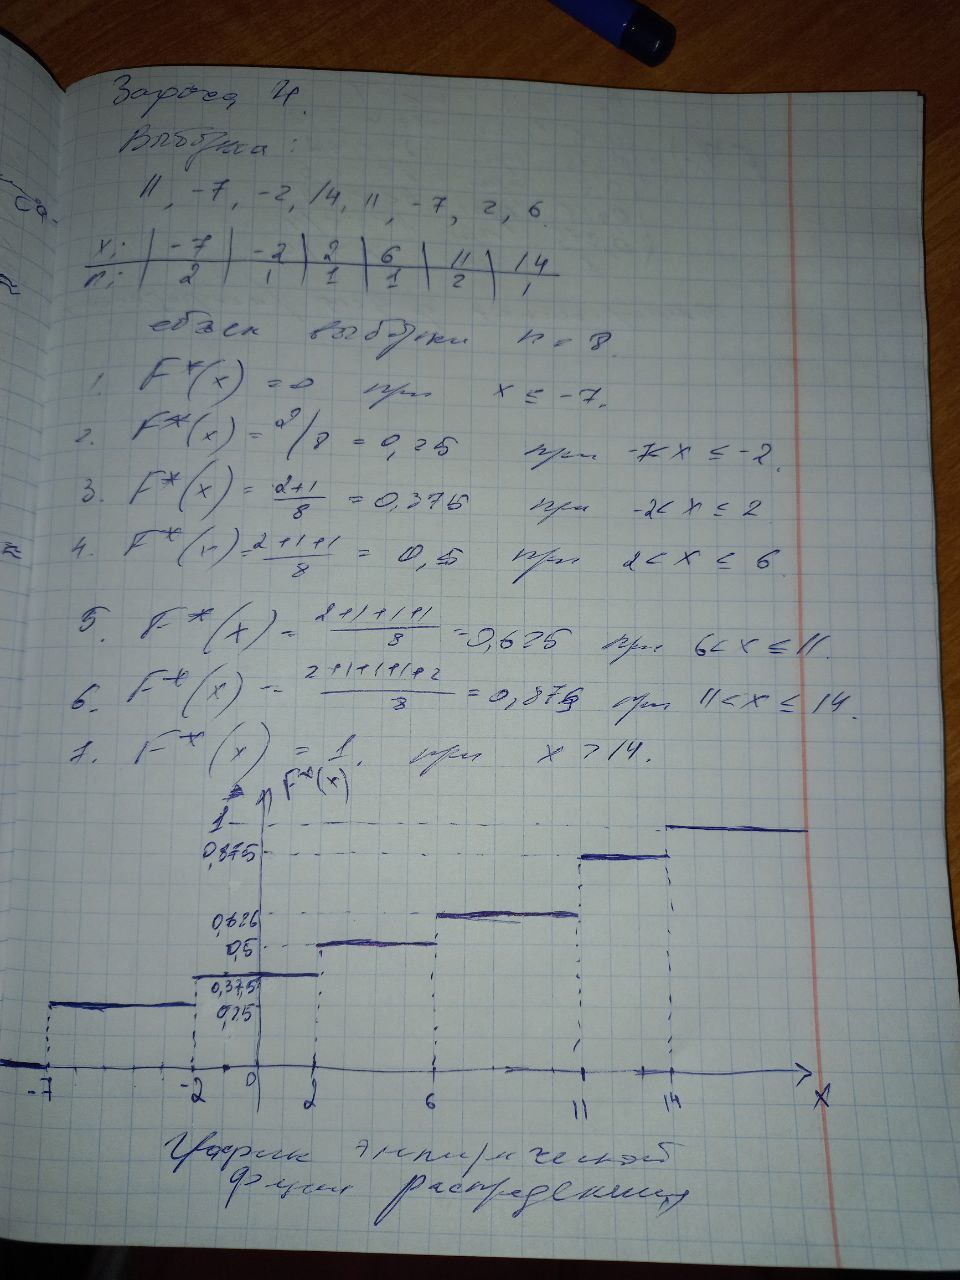 Задача 4.
Выборка:
11, -7, -2, 14, 11, -7, 2, 6
xi | -7 | -2 | 2 | 6 | 11 | 14
ni | 2 | 1 | 1 | 1 | 2 | 1
объем выборки n = 8.
1. F*(x) = 0 при x ≤ -7.
2. F*(x) = 2/8 = 0,25 при -7 < x ≤ -2.
3. F*(x) = (2+1)/8 = 0,375 при -2 < x ≤ 2
4. F*(x) = (2+1+1)/8 = 0,5 при 2 < x ≤ 6
5. F*(x) = (2+1+1+1)/8 = 0,625 при 6 < x ≤ 11.
6. F*(x) = (2+1+1+1+2)/8 = 0,875 при 11 < x ≤ 14.
7. F*(x) = 1. при x > 14.
F*(x)
1
0,875
0,625
0,5
0,375
0,25
-7 -2 0 2 6 11 14 x
График эмпирической
функции распределения